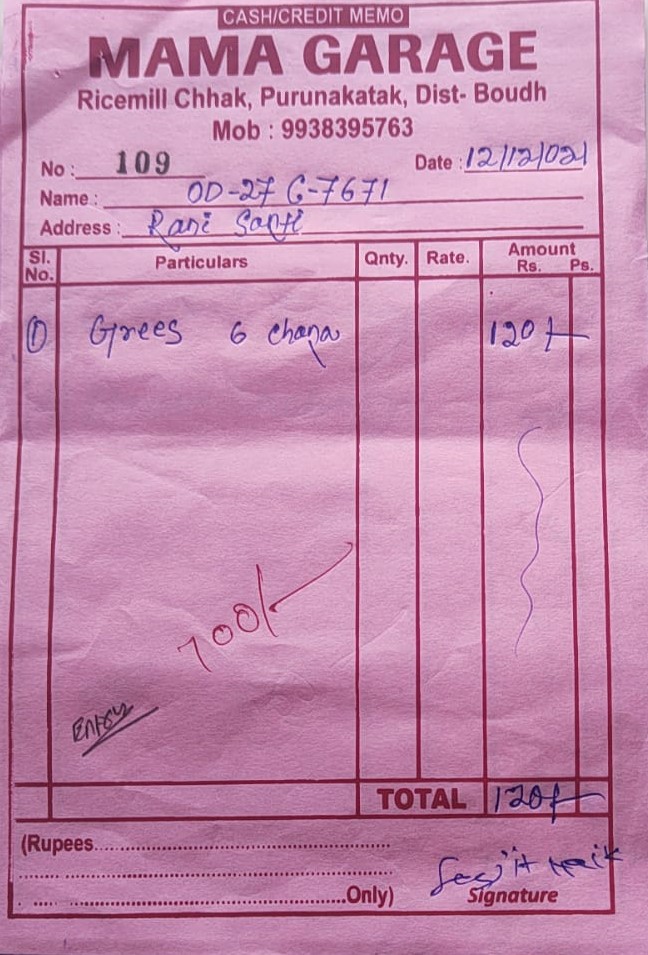 CASH/CREDIT MEMO
MAMA GARAGE
Ricemill Chhak, Purunakatak, Dist- Boudh
Mob : 9938395763
No : 109 Date : 12/12/021
Name : OD-27 C-7671
Address : Rani Sarti
Sl. No. Particulars Qnty. Rate. Amount Rs. Ps.
① Grees 6 chana 120/-
700/-
Entry
TOTAL 120/-
(Rupees
Only) Signature